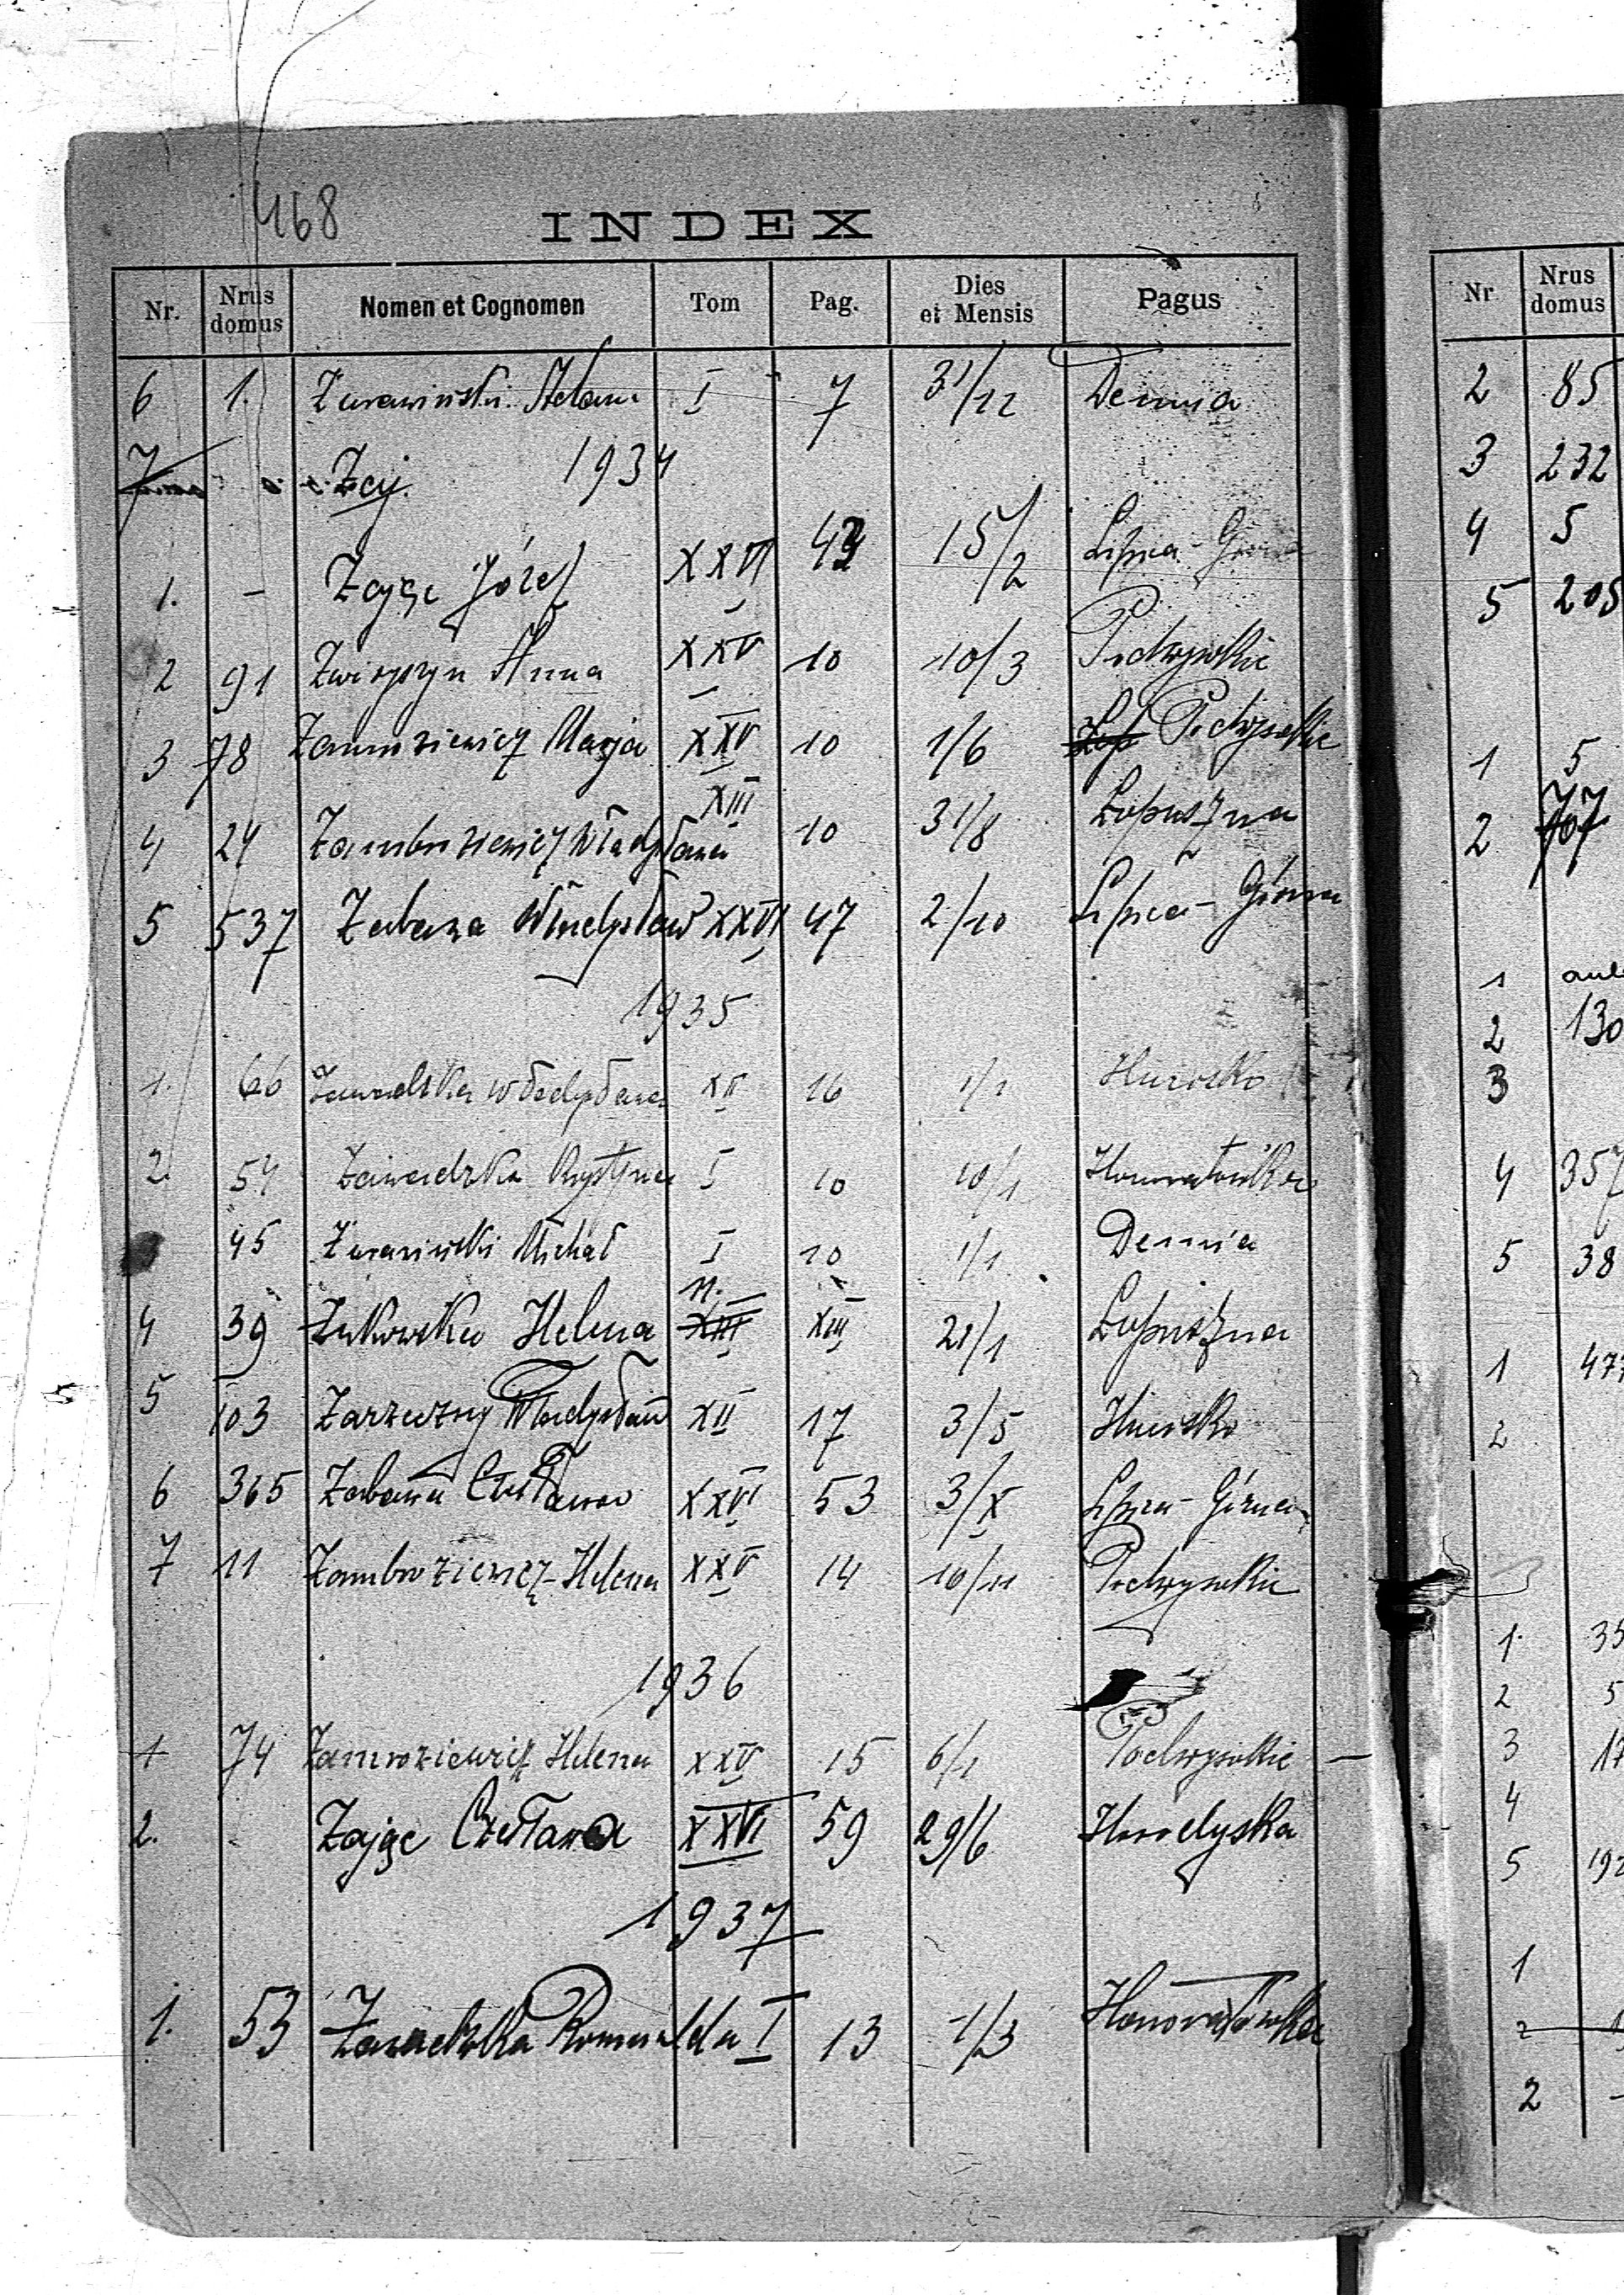 468
INDEX
Nr. Nrus domus Nomen et Cognomen Tom Pag. Dies et Mensis Pagus
6 1. Żurawiński I 7 31/12 Demnia
7 Zaj. 1934
1. - Zając Józef XXVI 15/2 Lipica-Górna
2 91 Anna XXV 10 10/3 Podwysokie
3 78 Marja XXV 10 1/6 Podwysokie
4 24 XIII 10 31/8 Łopuszna
5 537 Zabawa Władysław XXVI 47 2/10 Lipica-Górna
1935
1. 66 Zawadzka Władysława XII 16 1/1 Hucisko
2. 54 Zawadzka Krystyna I 10 10/1 Honoratówka
45 Żurawiński Michał I 10 1/1 Demnia
11.
4 39 Żukowska Helena XIII XIII 21/1 Łopuszna
5 103 Zarzeczny Władysław XII 17 3/5 Hucisko
6 365 Zabawa XXVI 53 3/X Lipica-Górna
7 11 Zambroziewicz-Helena XXV 14 10/11 Podwysokie
1936
1 74 Zamroziewicz Helena XXV 15 6/1 Podwysokie -
2. - Zając Czesława XXVI 59 29/6 Horodyska
1937
1. 53 Zawadzka Romualda I 13 1/3 Honoratówka
Nr Nrus domus
2 85
3 232
4 5
5 205
1 5
2
1
2 130
3
4 357
5 38
1
2
1. 35
2 5
3 17
4
5
1
2
2 -